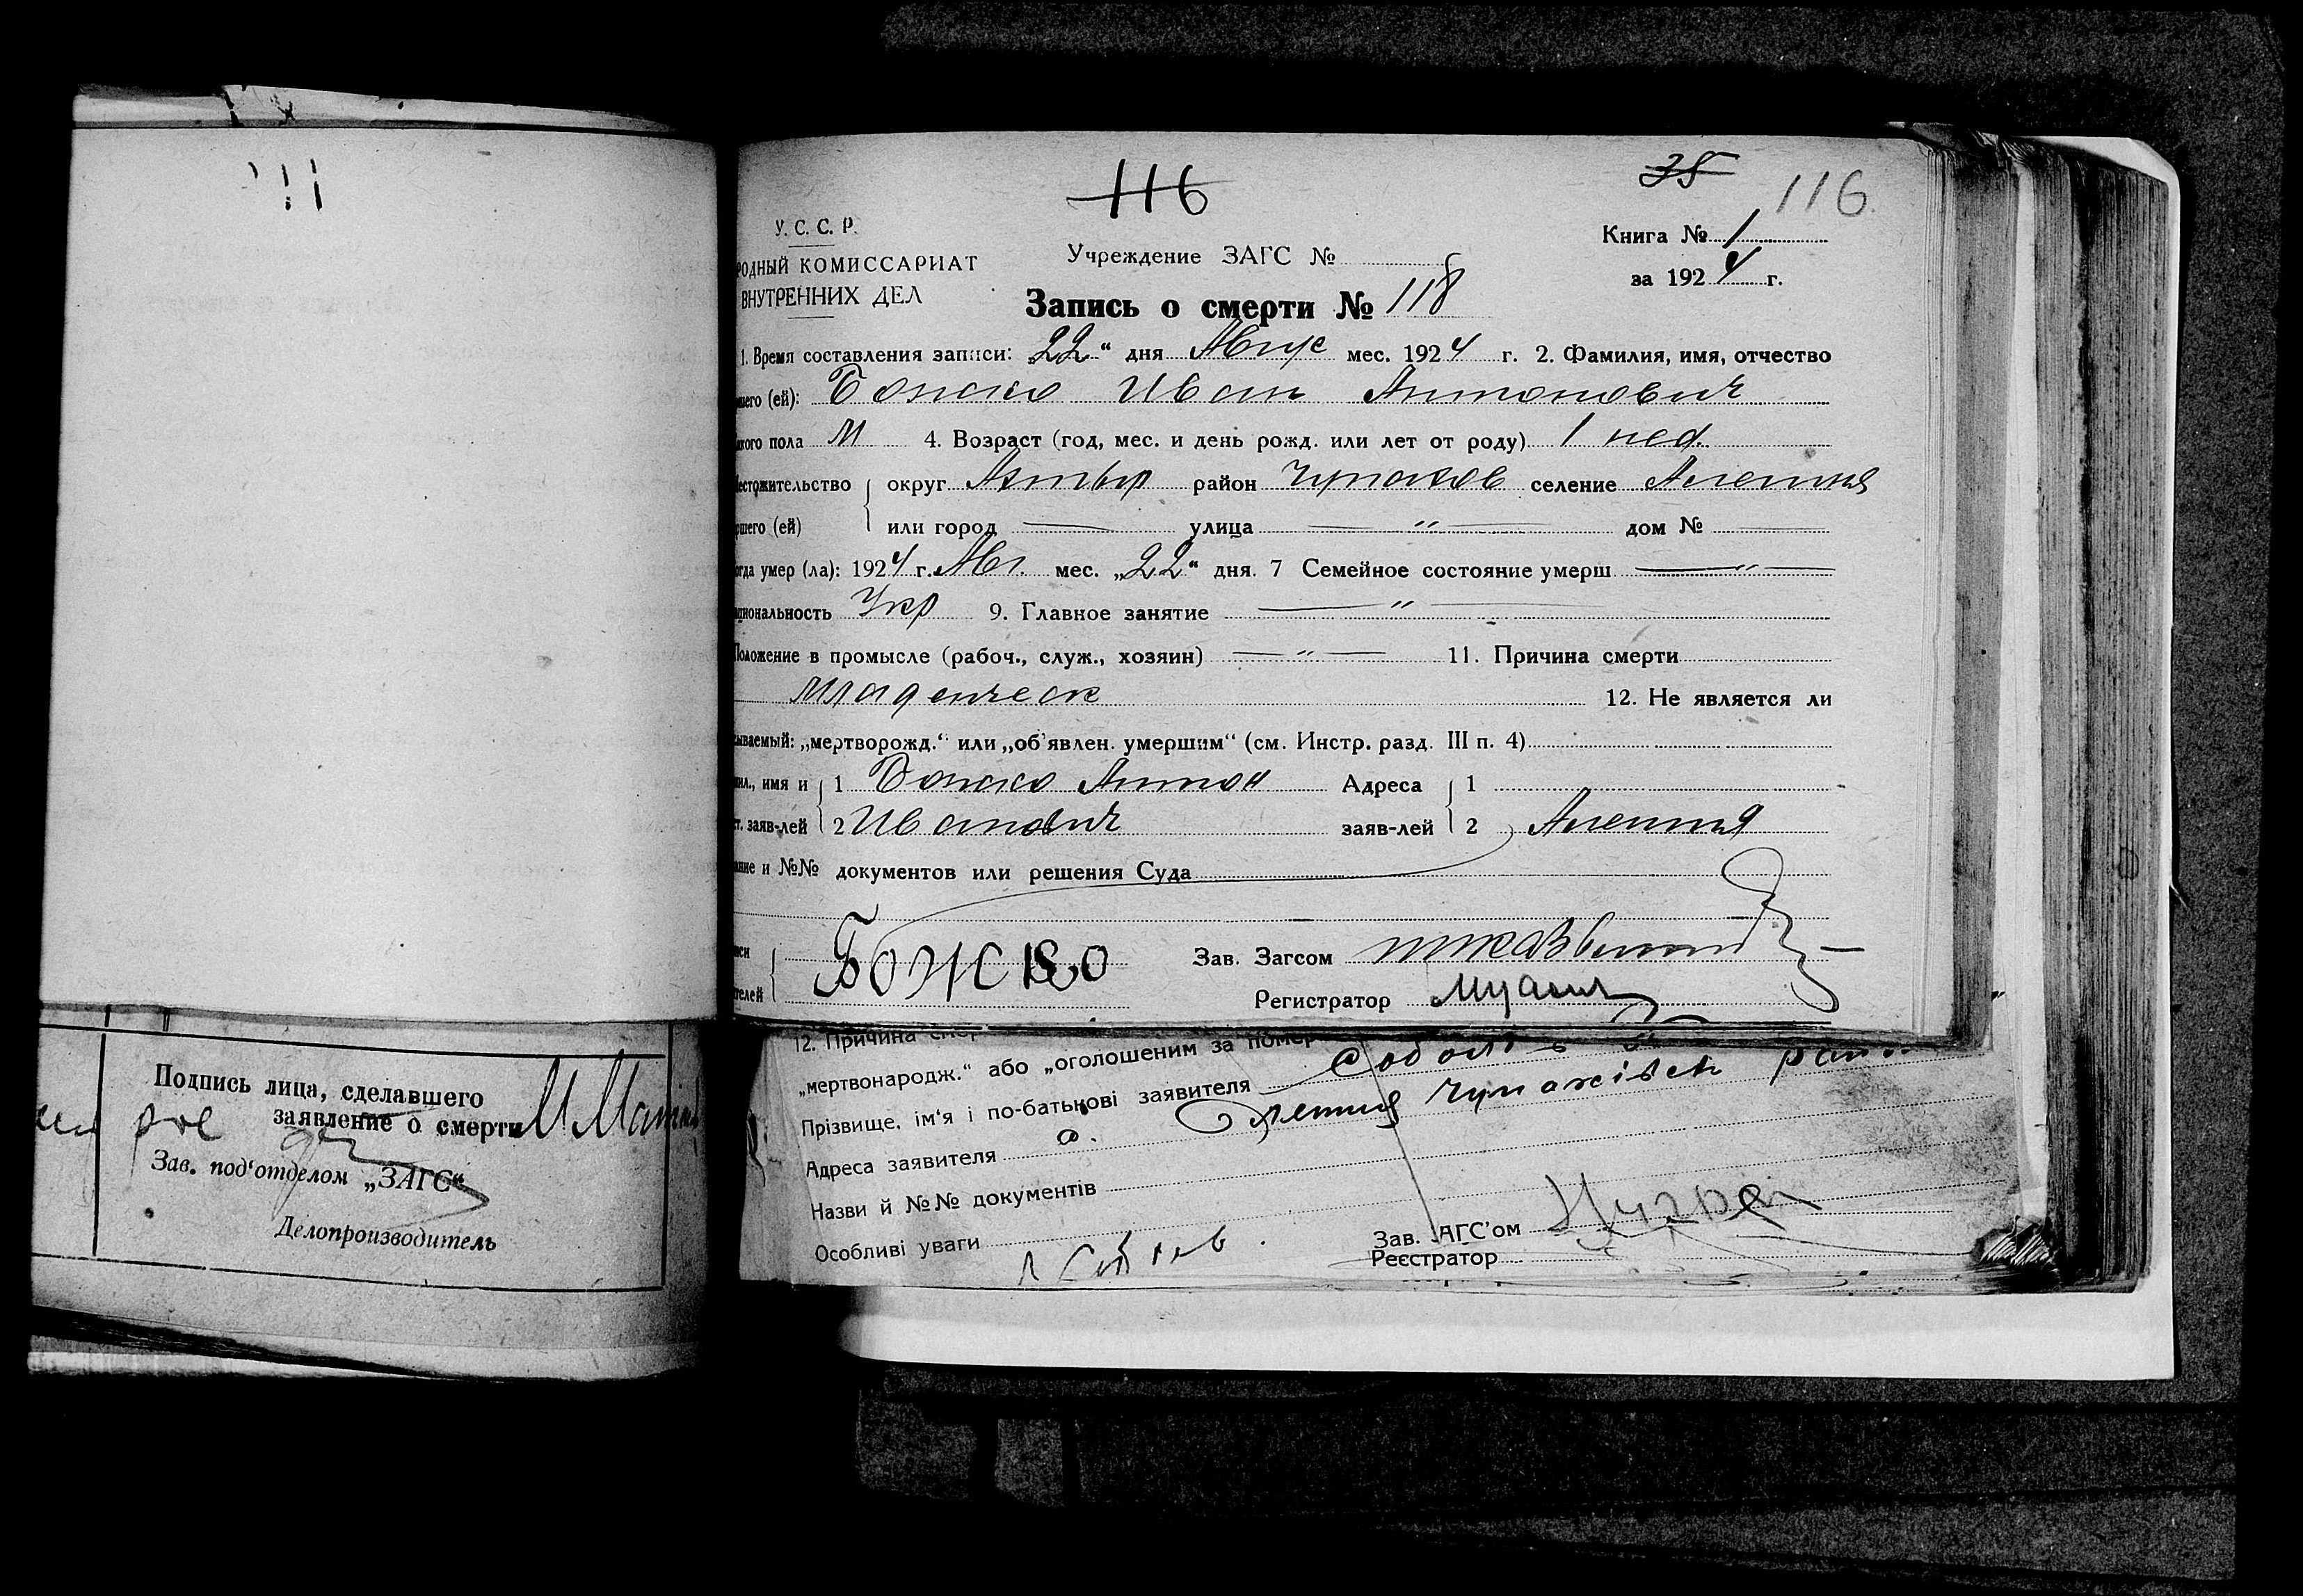 116
35 116
У. С. С. Р.
РОДНЫЙ КОМИССАРИАТ
ВНУТРЕННИХ ДЕЛ
Учреждение ЗАГС №
Книга № 1
за 1924 г.
Запись о смерти № 118
1. Время составления записи: „22“ дня Авгус мес. 1924 г. 2. Фамилия, имя, отчество
шего (ей): Божко Иван Антонович
кого пола М 4. Возраст (год, мес. и день рожд. или лет от роду) 1 нед.
естожительство округ Ахтыр район Чупахов селение Алешня
ршего (ей) или город — улица — „ — дом № —
огда умер (ла): 1924 г. Авг. мес. „22“ дня. 7 Семейное состояние умерш — „ —
циональность Укр 9. Главное занятие — „ —
Положение в промысле (рабоч., служ., хозяин) — „ — 11. Причина смерти
младенческ 12. Не является ли
ываемый: „мертворожд.“ или „об'явлен. умершим“ (см. Инстр. разд. III п. 4)
ил., имя и 1 Божко Антон Адреса 1
т. заяв-лей 2 Иванович заяв-лей 2 Алешня
ание и №№ документов или решения Суда
Божко Зав. Загсом
телей Регистратор
12. Причина смер
„мертвонародж.“ або „оголошеним за помер
Прізвище, ім'я і по-батькові заявителя
Адреса заявителя с. Олешня Чупахівськ
Назви й №№ документів
Особливі уваги
Зав. АГС'ом
Реєстратор
Подпись лица, сделавшего
заявление о смерти
Зав. под'отделом „ЗАГС“
Делопроизводитель